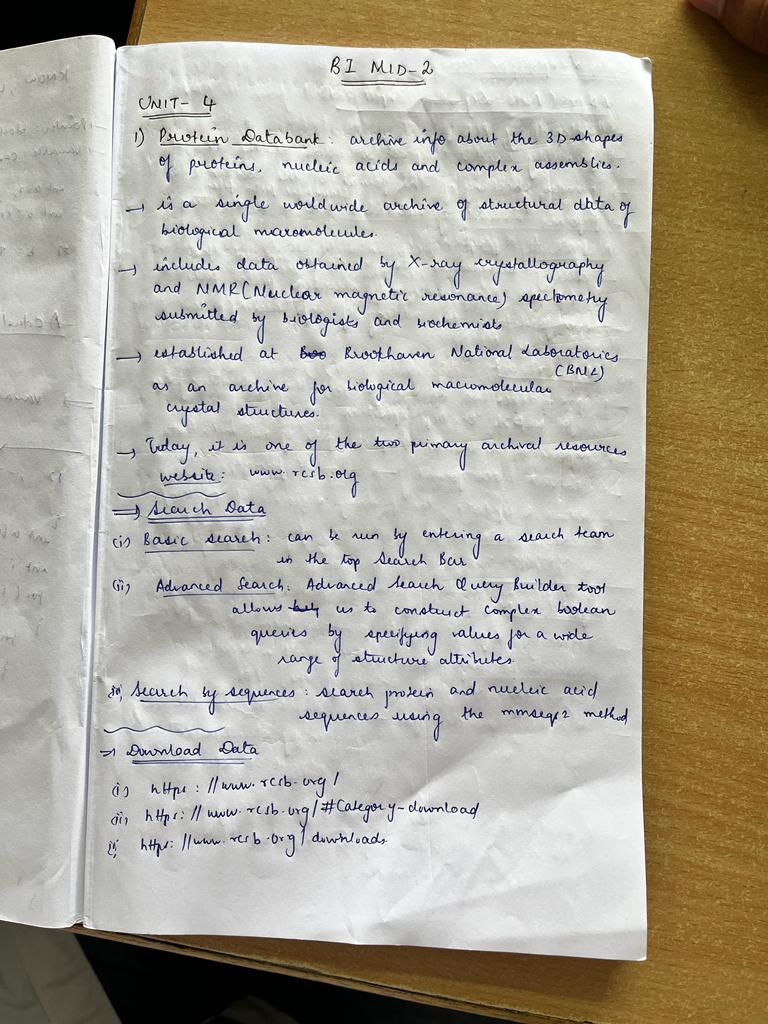 BI MID-2
UNIT- 4
1) Protein Databank: archive info about the 3D shapes
of proteins, nucleic acids and complex assemblies.
→ is a single worldwide archive of structural data of
biological macromolecules.
→ includes data obtained by X-ray crystallography
and NMR (Nuclear magnetic resonance) spectrometry
submitted by biologists and biochemists
→ established at Brookhaven National Laboratories
(BNL)
as an archive for biological macromolecular
crystal structures.
→ Today, it is one of the two primary archival resources
website: www.rcsb.org
⇒ Search Data
(i) Basic search: can be run by entering a search team
in the top Search Bar
(ii) Advanced Search: Advanced Search Query Builder tool
allows us to construct complex boolean
queries by specifying values for a wide
range of structure attributes.
iii) Search by sequences: search protein and nucleic acid
sequences using the mmseqs2 method
⇒ Download Data
(i) https://www.rcsb.org/
(ii) https://www.rcsb.org/#Category-download
https://www.rcsb.org/downloads